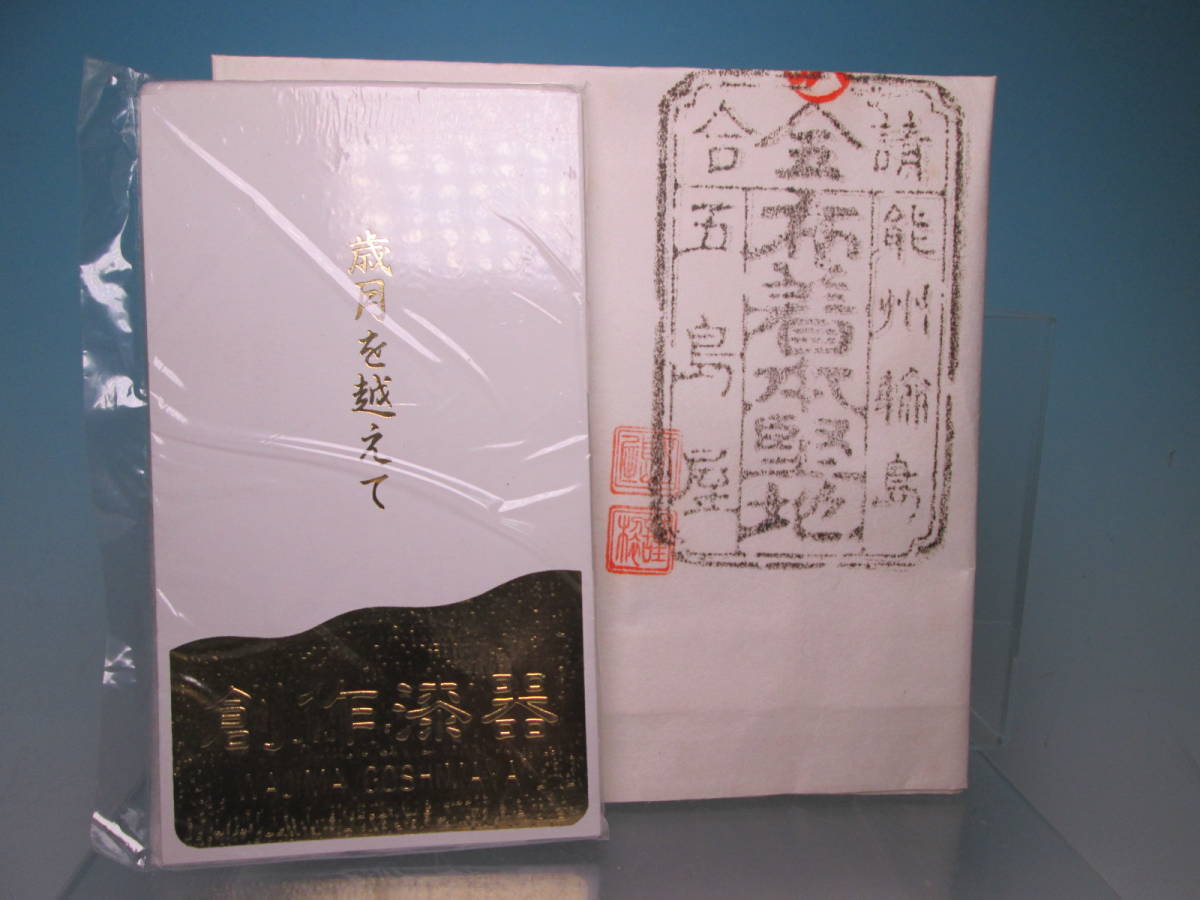 歳月を越えて
創作漆器
WAJIMA GOSHIMAYA
請合
能州輪島
全布着本堅地
五島屋